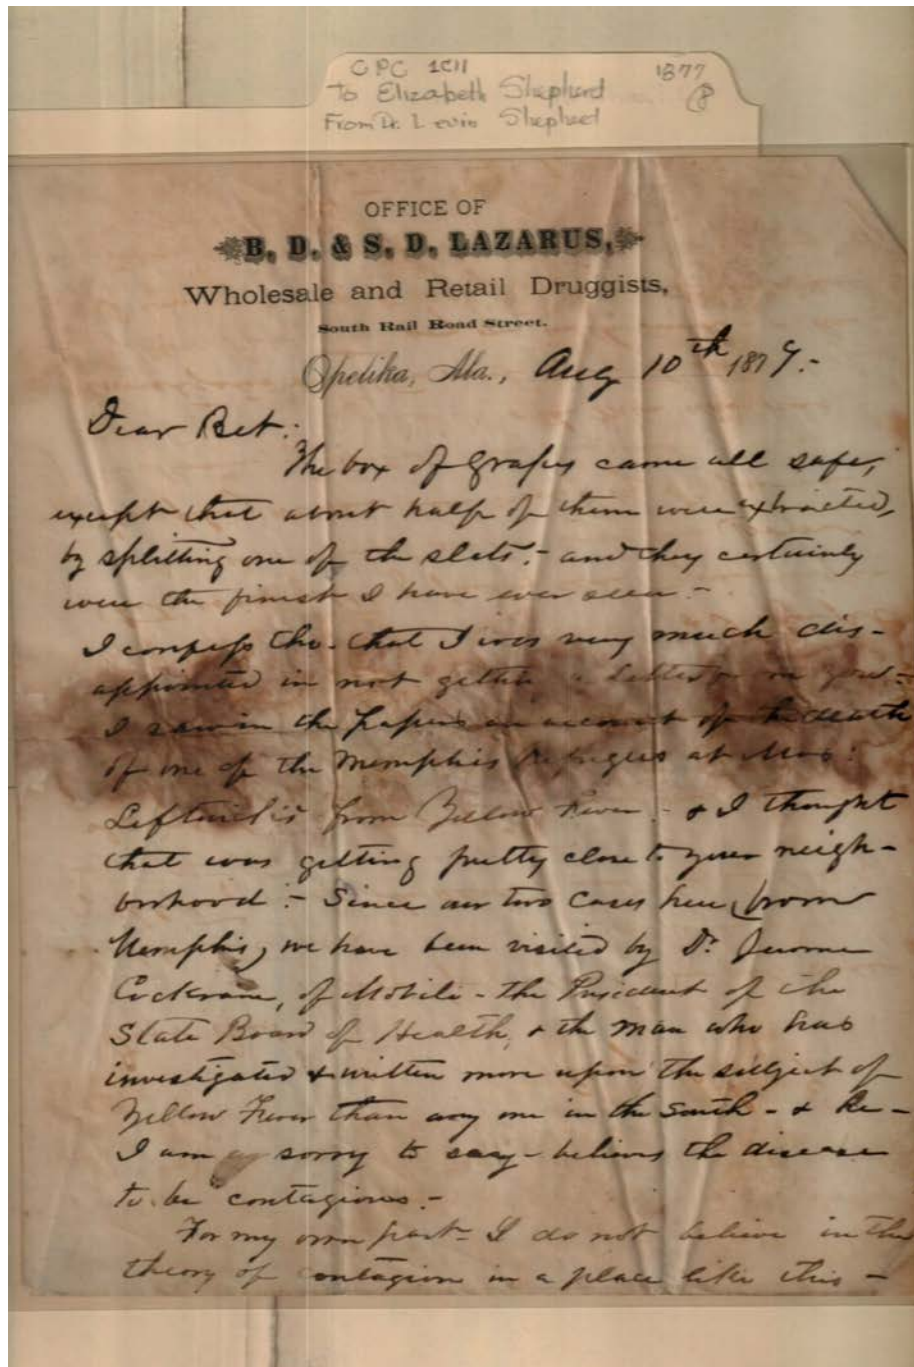 CPC 1011 1877
To Elizabeth Shepherd
From Dr. Levin Shepherd
OFFICE OF
B. D. & S. D. LAZARUS,
Wholesale and Retail Druggists,
South Rail Road Street.
Opelika, Ala., Aug 10th 1879.-
Dear Bet:
The box of grapes came all safe,
except that about half of them were extracted,
by splitting one of the slats:- and they certainly
were the finest I have ever seen.-
I confess tho- that I was very much dis-
appointed in not getting a letter from you.-
I saw in the papers an account of the death
of one of the Memphis Refugees at Mrs:
from Yellow Fever.- & I thought
that was getting pretty close to your neigh-
borhood:- Since our two cases here (from
Memphis) we have been visited by Dr. Jerome
Cockrane, of Mobile - the President of the
State Board of Health, & the man who has
investigated & written more upon the subject of
Yellow Fever than any one in the South - & he -
I am sorry to say - believes the disease
to be contagious.-
For my own part - I do not believe in the
theory of contagion in a place like this -